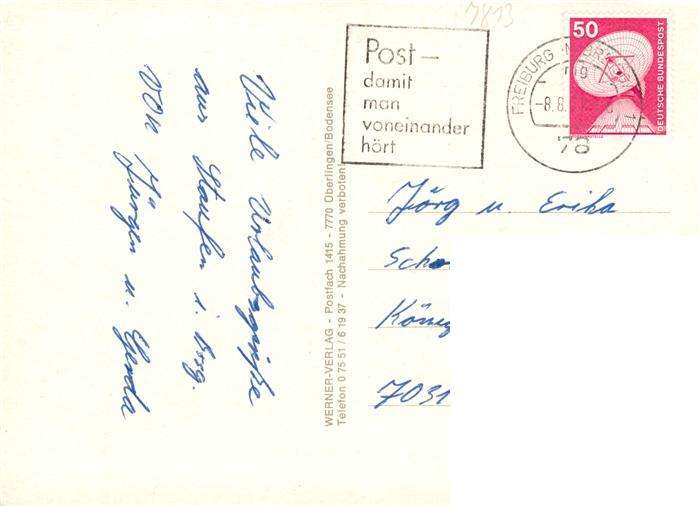 Viele Urlaubsgrüße
aus Staufen i. Brsg.
von Jürgen u. Gerda
WERNER-VERLAG - Postfach 1415 - 7770 Überlingen/Bodensee
Telefon 0 75 51 / 6 19 37 - Nachahmung verboten!
7813
Post –
damit
man
voneinander
hört
FREIBURG
mg
-8.8.
78
50
DEUTSCHE BUNDESPOST
Jörg u. Erika
Scho
König
7031